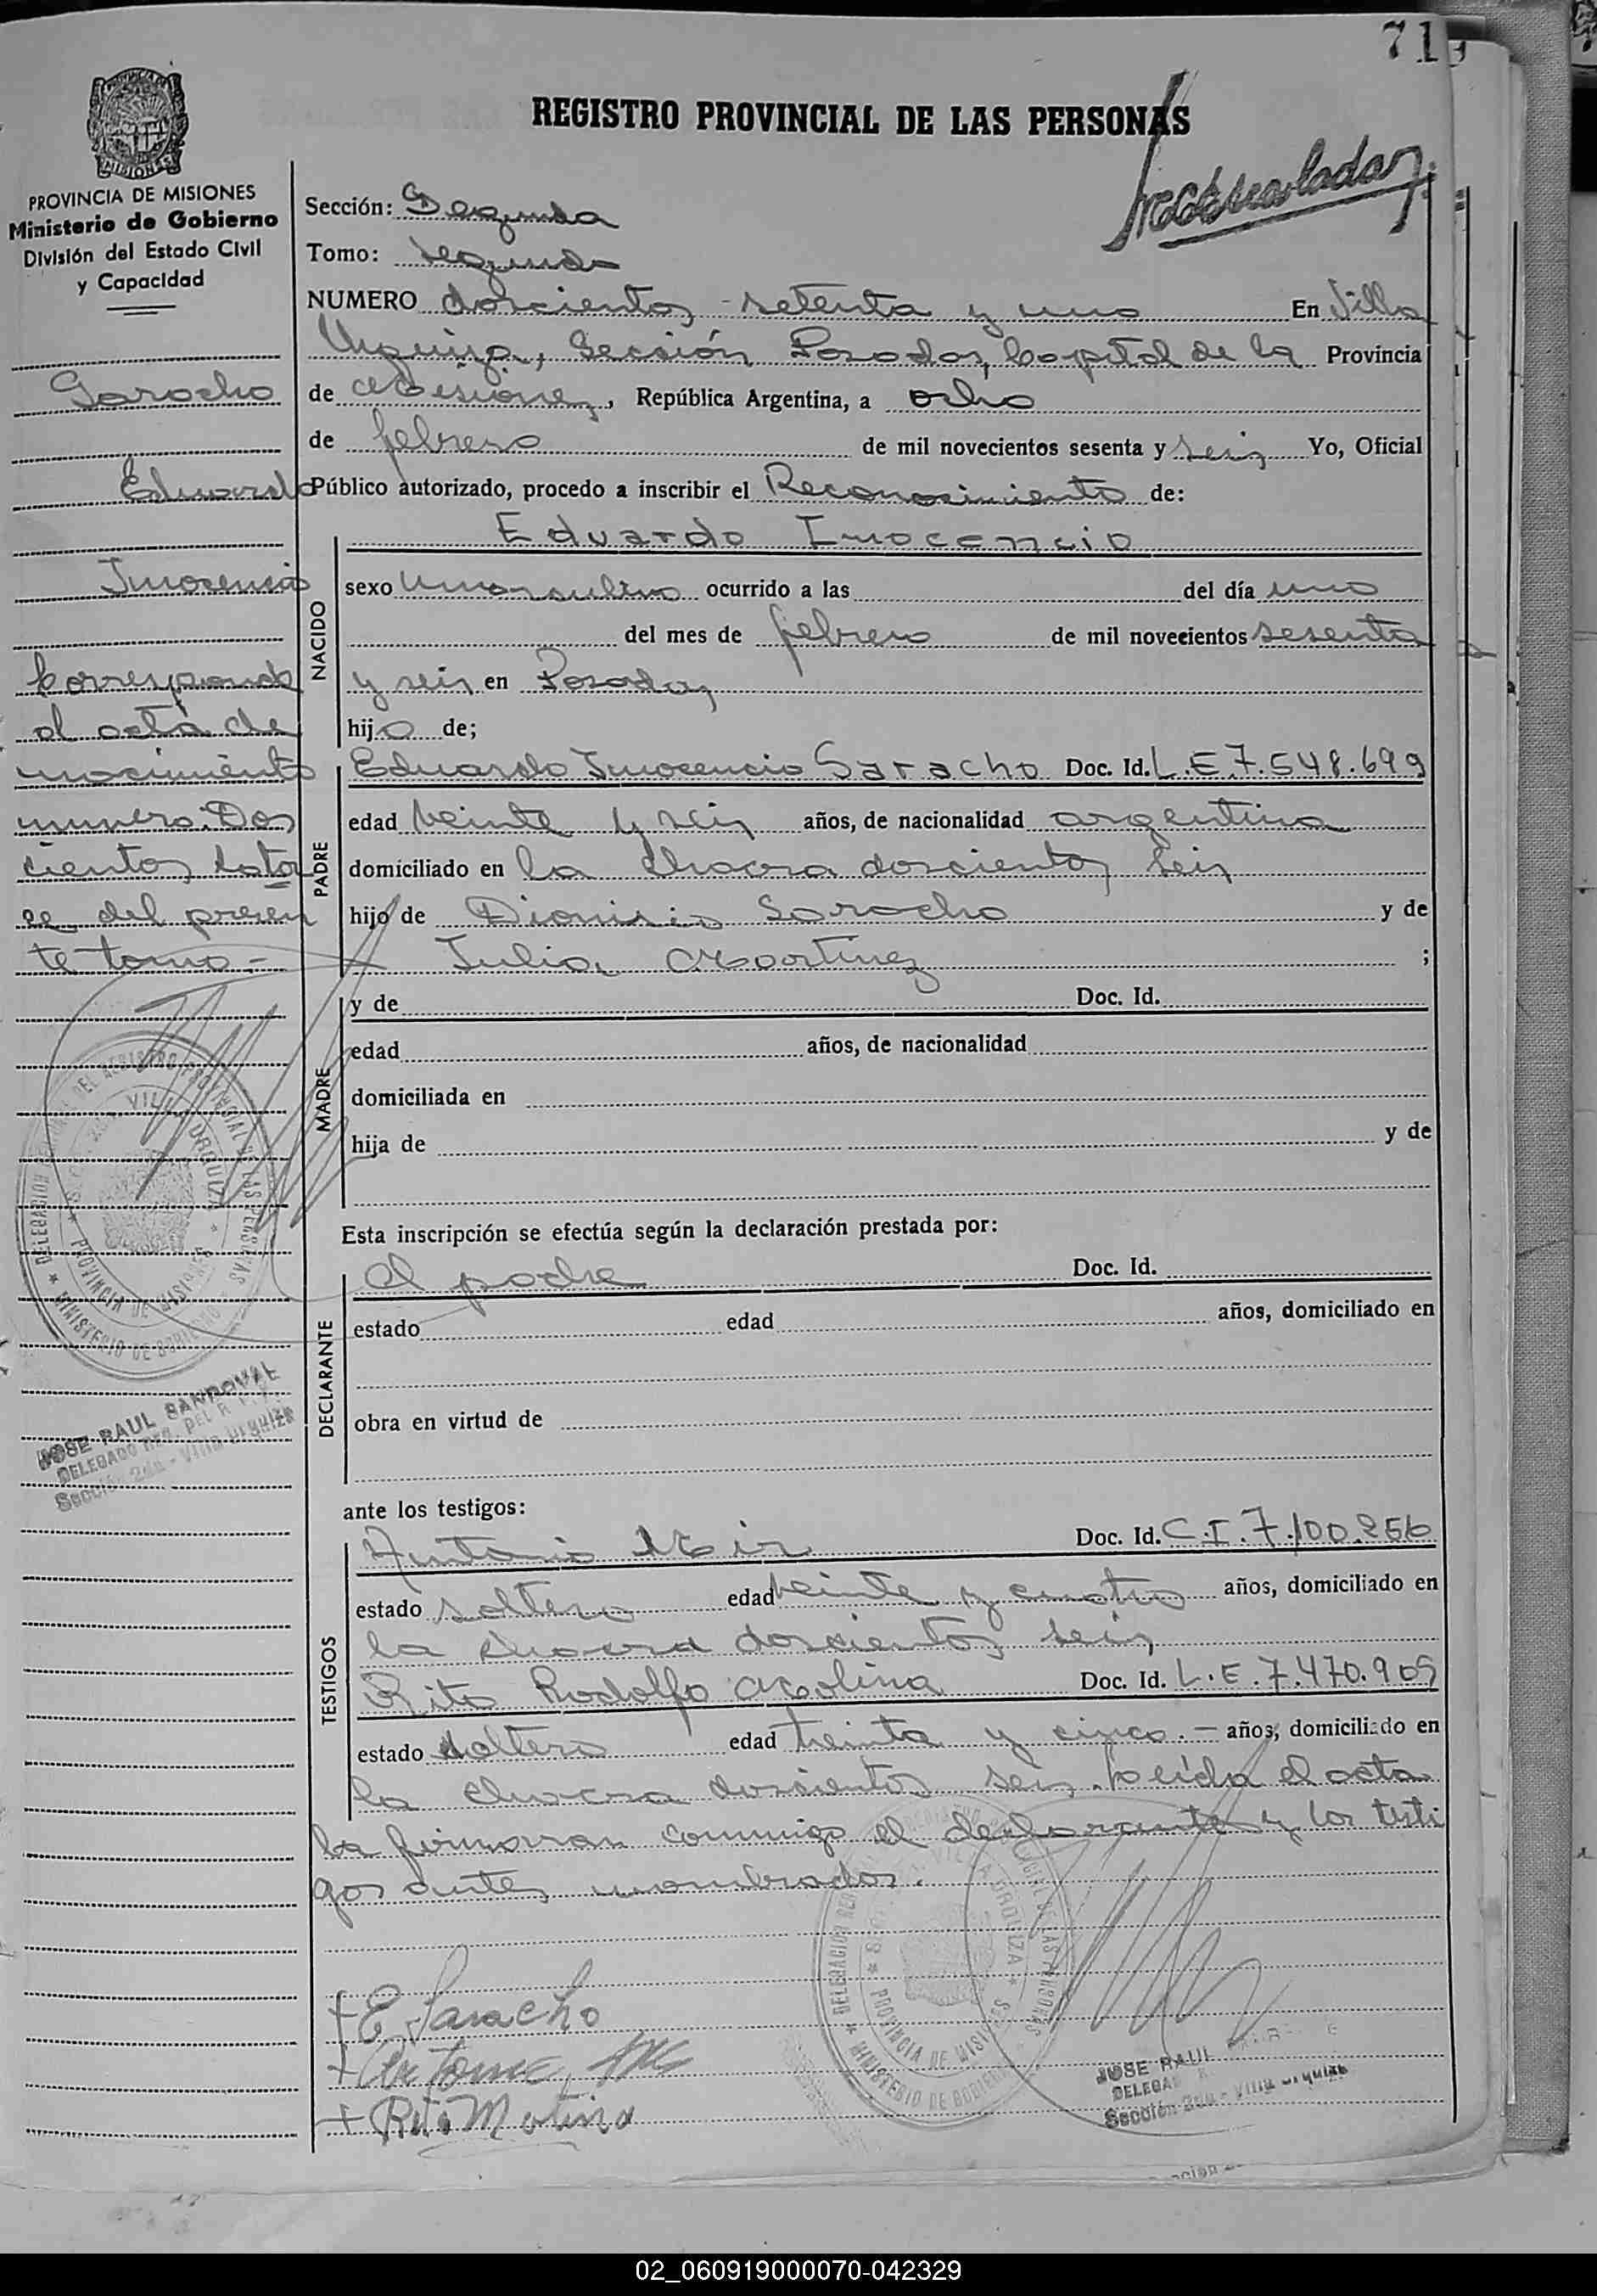 71
REGISTRO PROVINCIAL DE LAS PERSONAS
MISIONES
PROVINCIA DE MISIONES
Ministerio de Gobierno
División del Estado Civil
y Capacidad
Sección: Segunda
Tomo: segundo
NUMERO doscientos setenta y uno En Villa
Urquiza, Sección Posadas, Capital de la Provincia
de Misiones, República Argentina, a ocho
de febrero de mil novecientos sesenta y seis Yo, Oficial
Público autorizado, procedo a inscribir el Reconocimiento de:
Saracho
Eduardo
Inocencio
Corresponde
al acta de
nacimiento
numero Dos
cientos cator
ce del presen
te tomo.-
NACIDO
Eduardo Inocencio
sexo masculino ocurrido a las del día uno
del mes de febrero de mil novecientos sesenta
y seis en Posadas
hijo de;
PADRE
Eduardo Inocencio Saracho Doc. Id. L.E.7.548.699
edad veinte y seis años, de nacionalidad argentina
domiciliado en la chacra doscientos seis
hijo de Dionisio Saracho y de
Julia Martinez ;
MADRE
y de Doc. Id.
edad años, de nacionalidad
domiciliada en
hija de y de
Esta inscripción se efectúa según la declaración prestada por:
DECLARANTE
el padre Doc. Id.
estado edad años, domiciliado en
obra en virtud de
JOSE RAUL SANDOVAL
DELEGADO REG. DEL R. P. P.
Sección 2da - Villa Urquiza
ante los testigos:
TESTIGOS
Antonio Doc. Id. C.I.7.100.256
estado soltero edad veinte y cuatro años, domiciliado en
la chacra doscientos seis
Rito Rodolfo Molina Doc. Id. L.E.7.470.909
estado soltero edad treinta y cinco.- años, domiciliado en
la chacra doscientos seis. Leída el acta
la firmaran conmigo el declarante y los testi
gos antes nombrados.
+ E. Saracho
+ Rito Molina
VILLA URQUIZA
PROVINCIA DE MISIONES
MINISTERIO DE GOBIERNO
JOSE RAUL
Sección 2da - Villa Urquiza
02_060919000070-042329